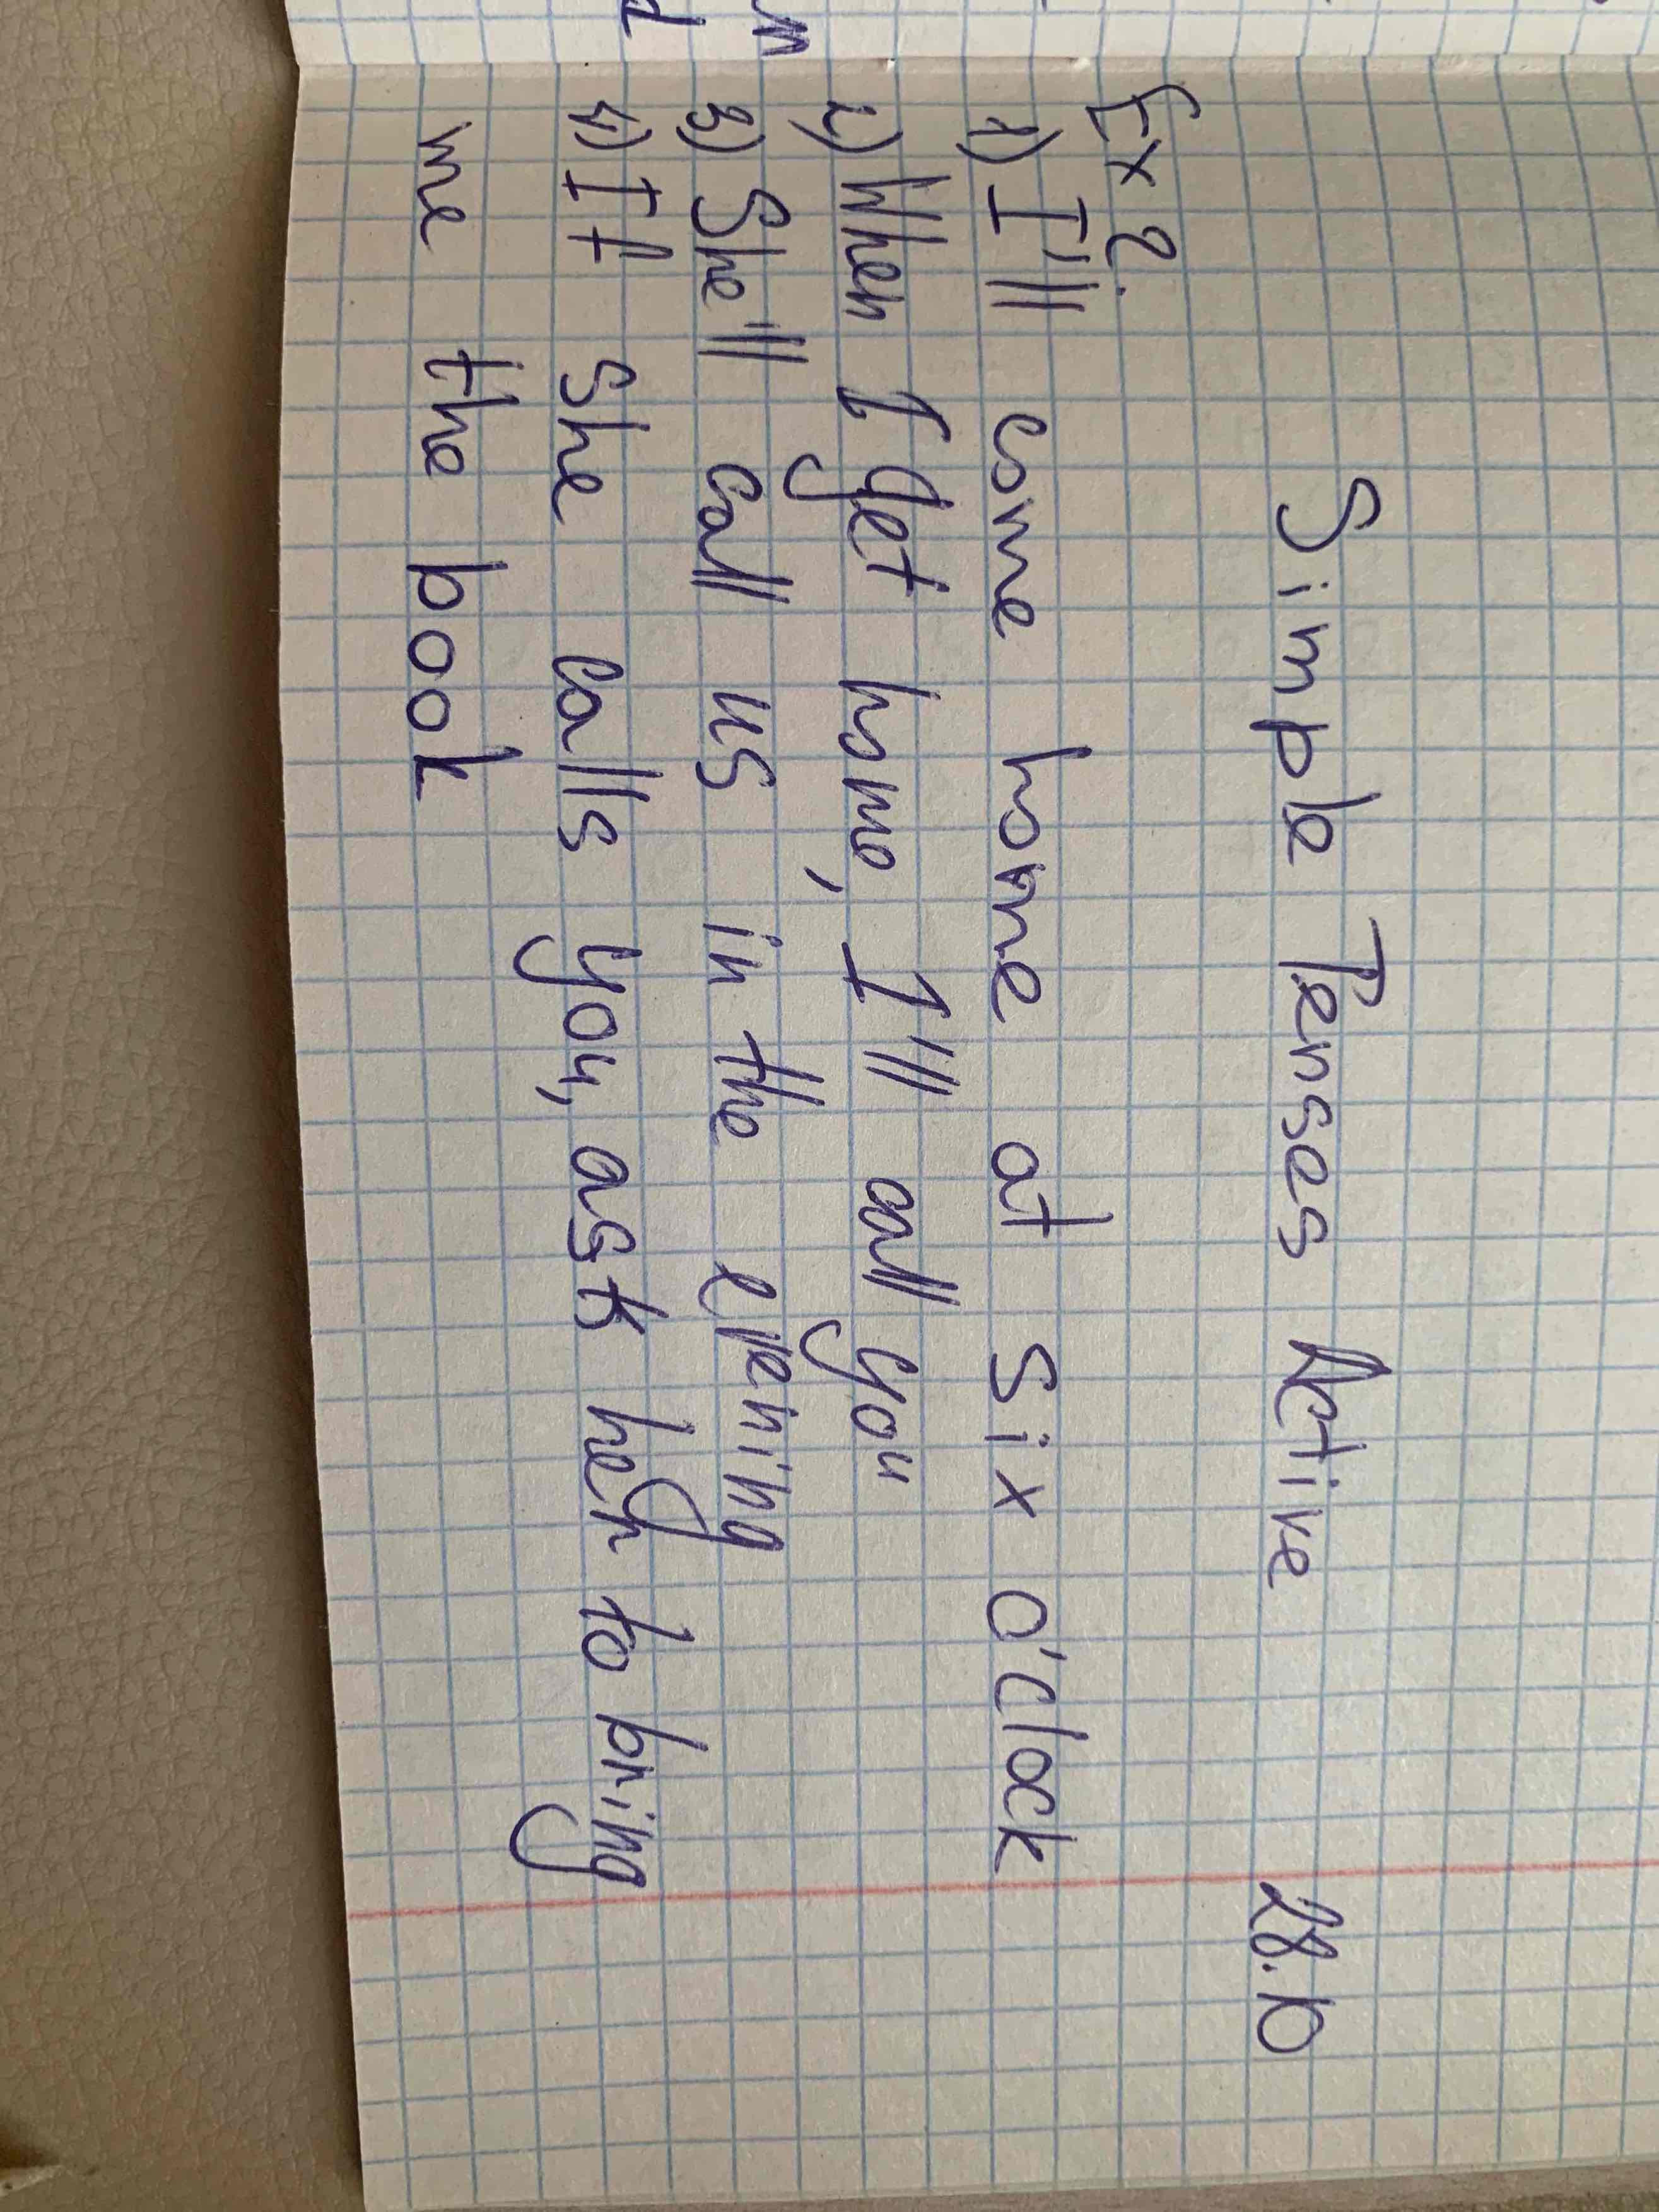 28.10
Simple Tenses Active
Ex 2.
1) I'll come home at six o'clock
2) When I get home, I'll call you
3) She'll call us in the evening
4) If she calls you, ask her to bring
me the book